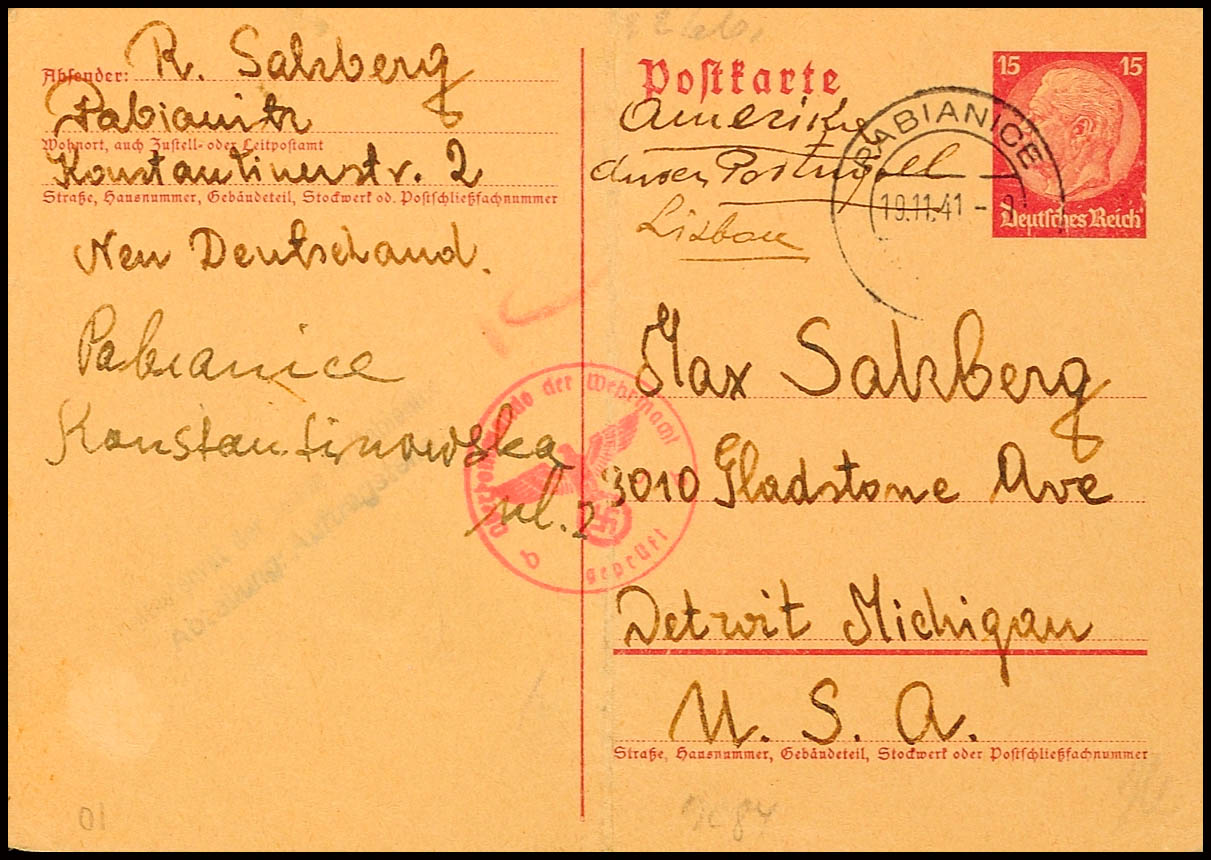 Absender: R. Salzberg
Pabianitz
Wohnort, auch Zustell- oder Leitpostamt
Konstantinerstr. 2
Straße, Hausnummer, Gebäudeteil, Stockwerk od. Postschließfachnummer
Neu Deutschland.
Pabianice
Konstantinowska
ul. 2
Postkarte
Amerika
Lisbou
15 15
Deutsches Reich
PABIANICE
19.11.41
Oberkommando der Wehrmacht
b
geprüft
Max Salzberg
3010 Gladstone Ave
Detroit Michigan
U. S. A.
Straße, Hausnummer, Gebäudeteil, Stockwerk oder Postschließfachnummer
01
84